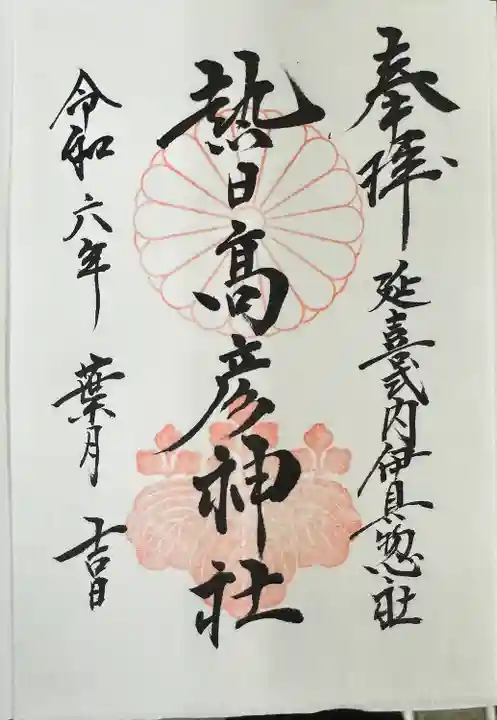 奉拝 延喜式内伊具惣社
熱日高彦神社
令和六年 葉月 吉日